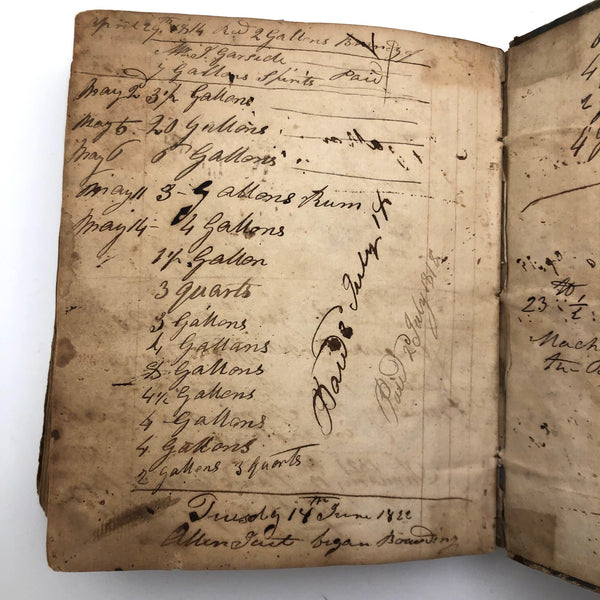 April 29th 1814 Recd 2 Gallons Brandy of
Mr J. Garside
7 Gallons Spirits Paid
May 2 3½ Gallons
May 5 - 20 Gallons
May 6 6 Gallons
May 11 3 - Gallons Rum
May 14 - 4 Gallons
1½ Gallon
3 quarts
3 Gallons
4 Gallons
2 Gallons
4½ Gallons
4 Gallons
4 Gallons
2 Gallons 3 quarts
Paid 8 July 18
Paid 2d July 1812
Tuesday 18th June 1822
Allen began Boarding
23 ½
Mach
the